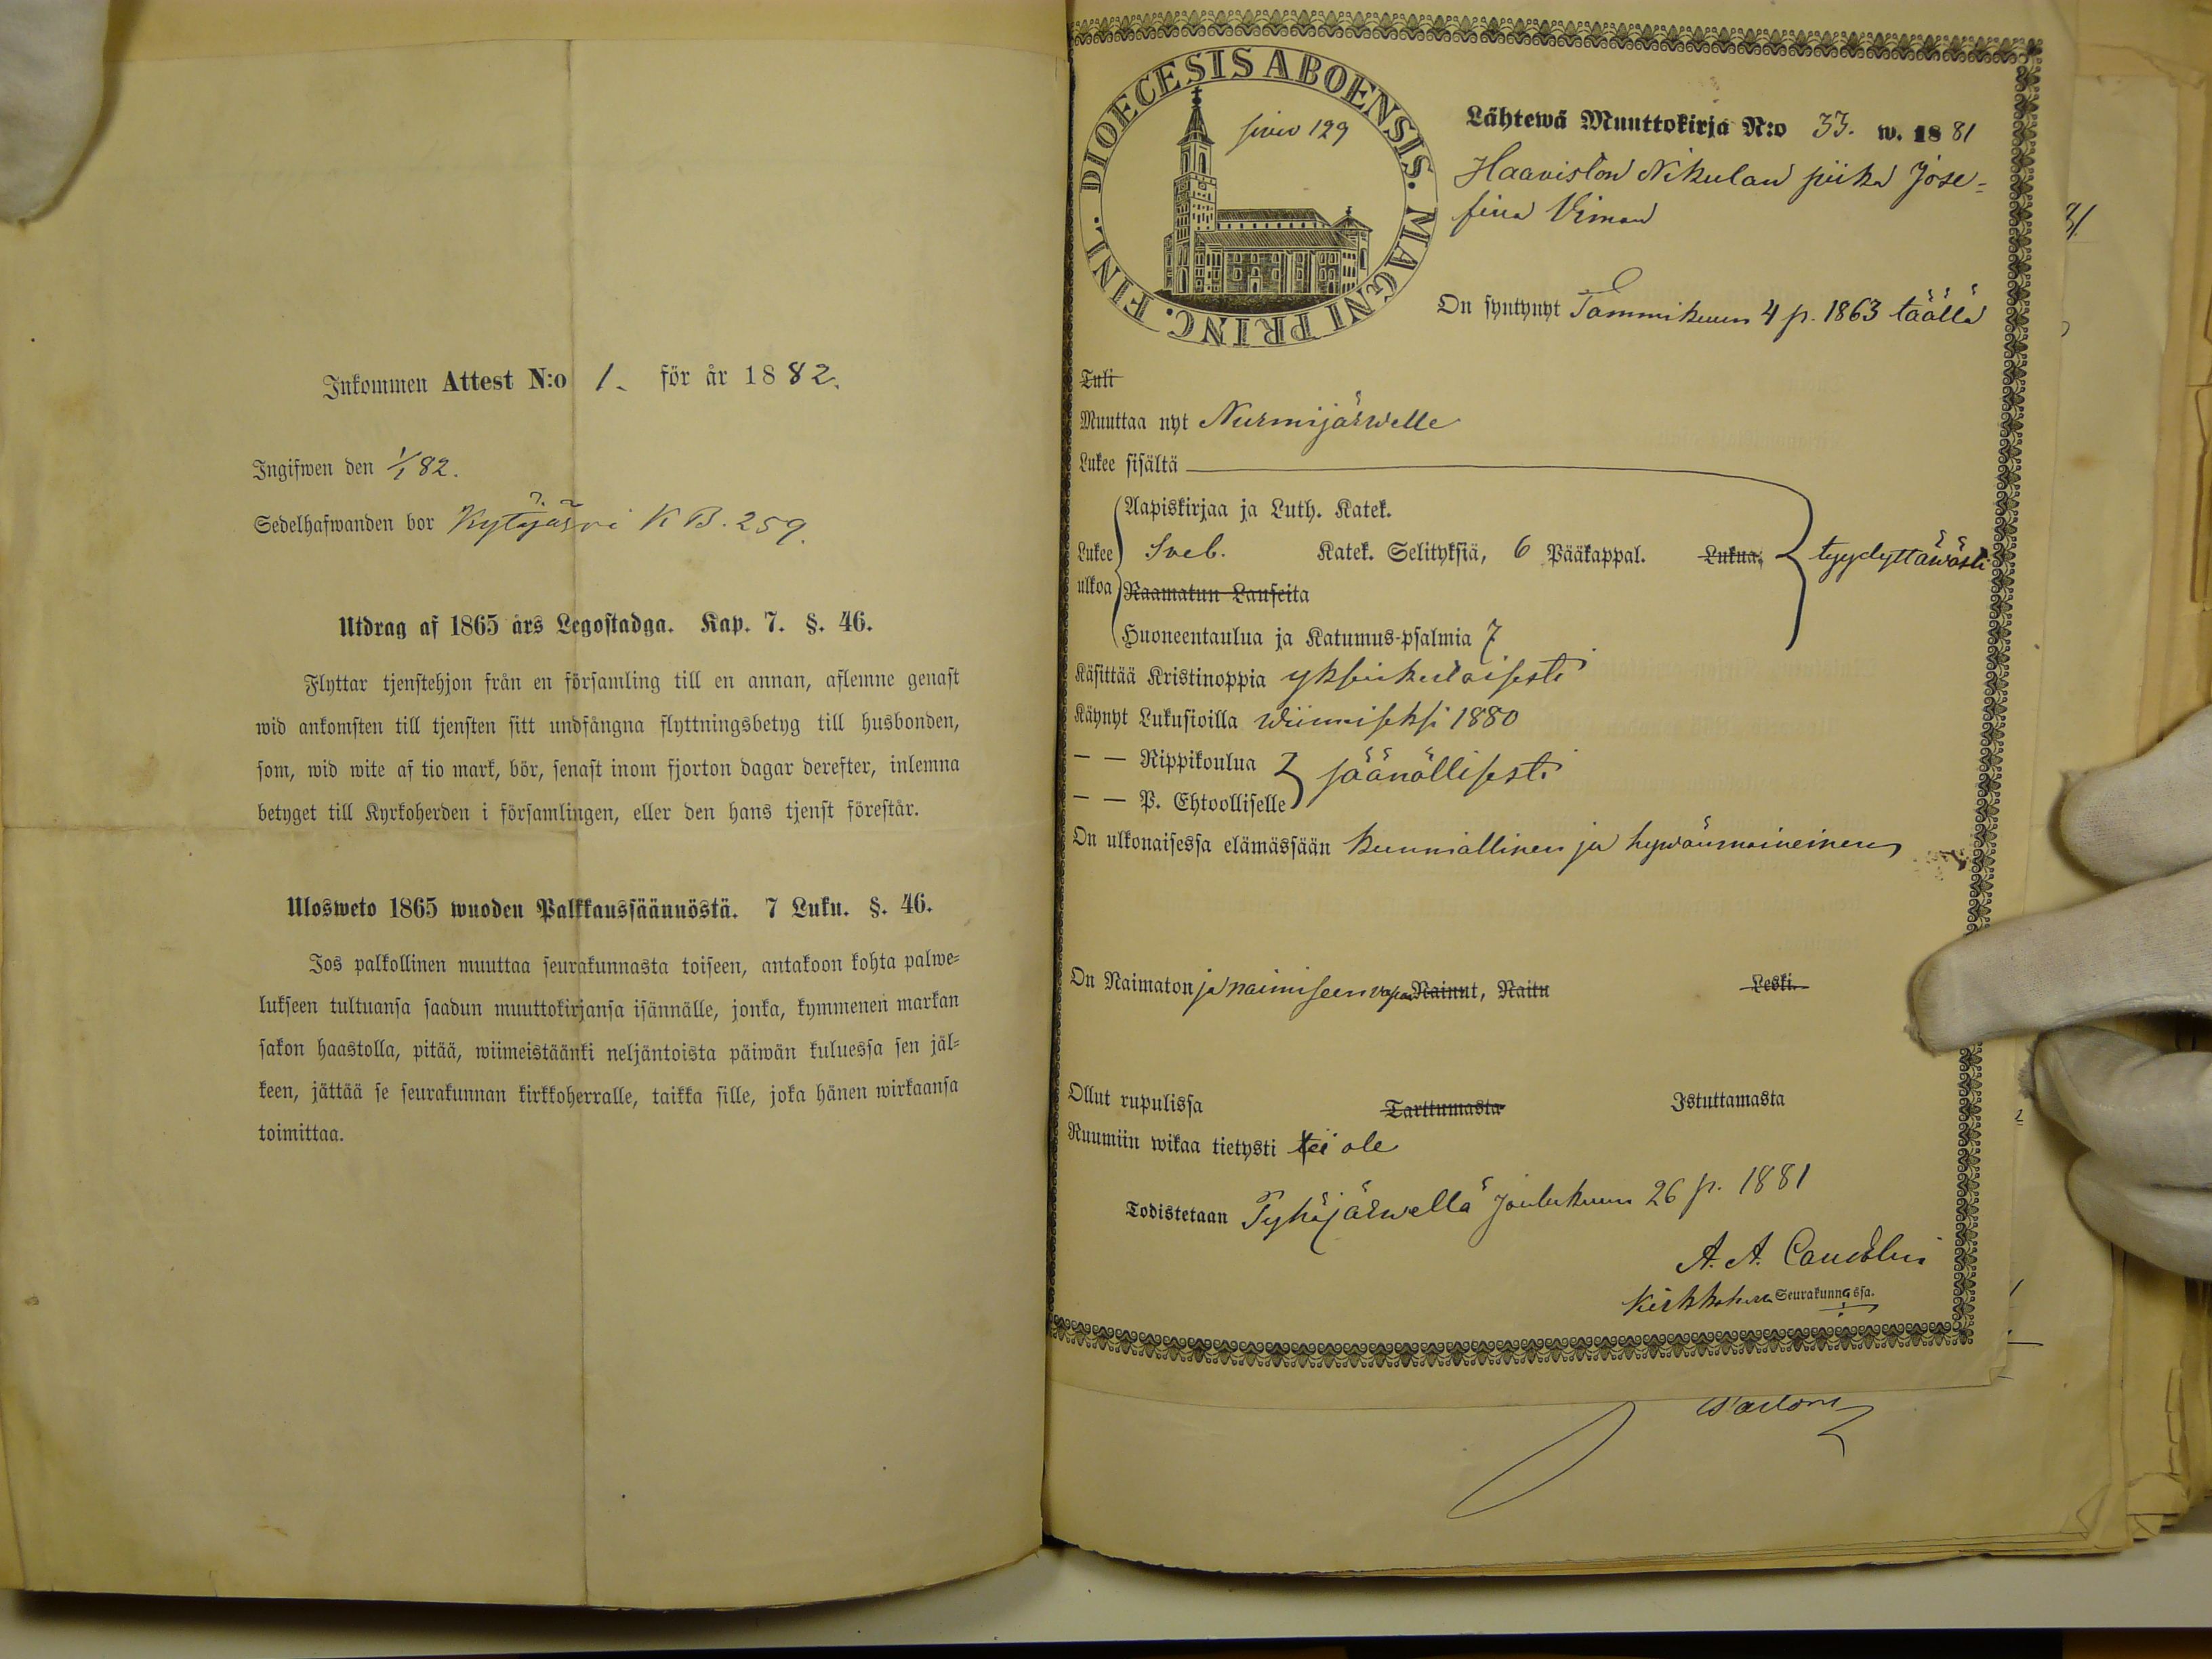 Inkommen Attest N:o 1. för år 1882.
Ingifwen den 1/1 82.
Sedelhafwanden bor Kytäjärvi K B. 259.
Utdrag af 1865 års Legostadga. Kap. 7. §. 46.
Flyttar tjenstehjon från en församling till en annan, aflemne genast
wid ankomsten till tjensten sitt undfångna flyttningsbetyg till husbonden,
som, wid wite af tio mark, bör, senast inom fjorton dagar derefter, inlemna
betyget till Kyrkoherden i församlingen, eller den hans tjenst förestår.
Ulosweto 1865 wuoden Palkkaussäännöstä. 7 Luku. §. 46.
Jos palkollinen muuttaa seurakunnasta toiseen, antakoon kohta palwe=
lukseen tultuansa saadun muuttokirjansa isännälle, jonka, kymmenen markan
sakon haastolla, pitää, wiimeistäänki neljäntoista päiwän kuluessa sen jäl=
keen, jättää se seurakunnan kirkkoherralle, taikka sille, joka hänen wirkaansa
toimittaa.
DIOECESIS ABOENSIS. MAGNI PRINC. FINL.
sivu 129
Lähtewä Muuttokirja N:o 33. w. 1881
Haaviston Nikulan piika Jose=
fina Viman
On syntynyt Tammikuun 4 p. 1863 täällä
Tuli
Muuttaa nyt Nurmijärwelle
Lukee sisältä
Aapiskirjaa ja Luth. Katek.
Lukee ulkoa Sveb. Katek. Selityksiä, 6 Pääkappal. Lukua, tyydyttäwästi
Raamatun Lauseita
Huoneentaulua ja Katumus-psalmia 7
Käsittää Kristinoppia yksinkertaisesti
Käynyt Lukusioilla wiimiseksi 1880
— — Rippikoulua säänöllisesti
— — P. Ehtoolliselle
On ulkonaisessa elämässään kunniallinen ja hywänmaineinen
On Naimaton ja naimiseen vapaa Nainut, Naitu Leski.
Ollut rupulissa Tarttumasta Istuttamasta
Ruumiin wikaa tietysti ei ole
Todistetaan Pyhäjärwellä Joulukuun 26 p. 1881
A. A.
Kirkkoherra Seurakunnassa.
Pastor